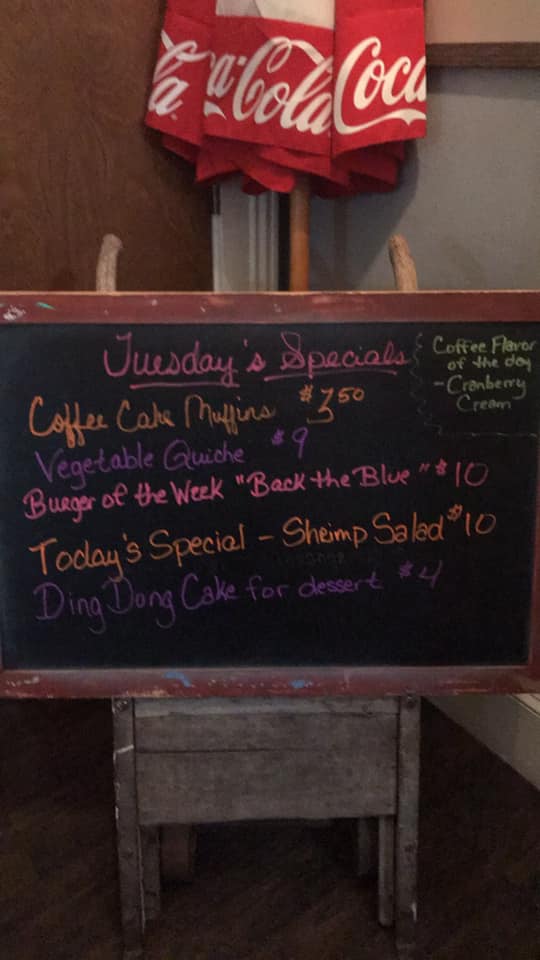 Coca-Cola
Coca
Tuesday's Specials
Coffee Flavor
of the day
- Cranberry
Cream
Coffee Cake Muffins $3.50
Vegetable Quiche $9
Burger of the Week "Back the Blue" $10
Today's Special - Shrimp Salad $10
Ding Dong Cake for dessert $4